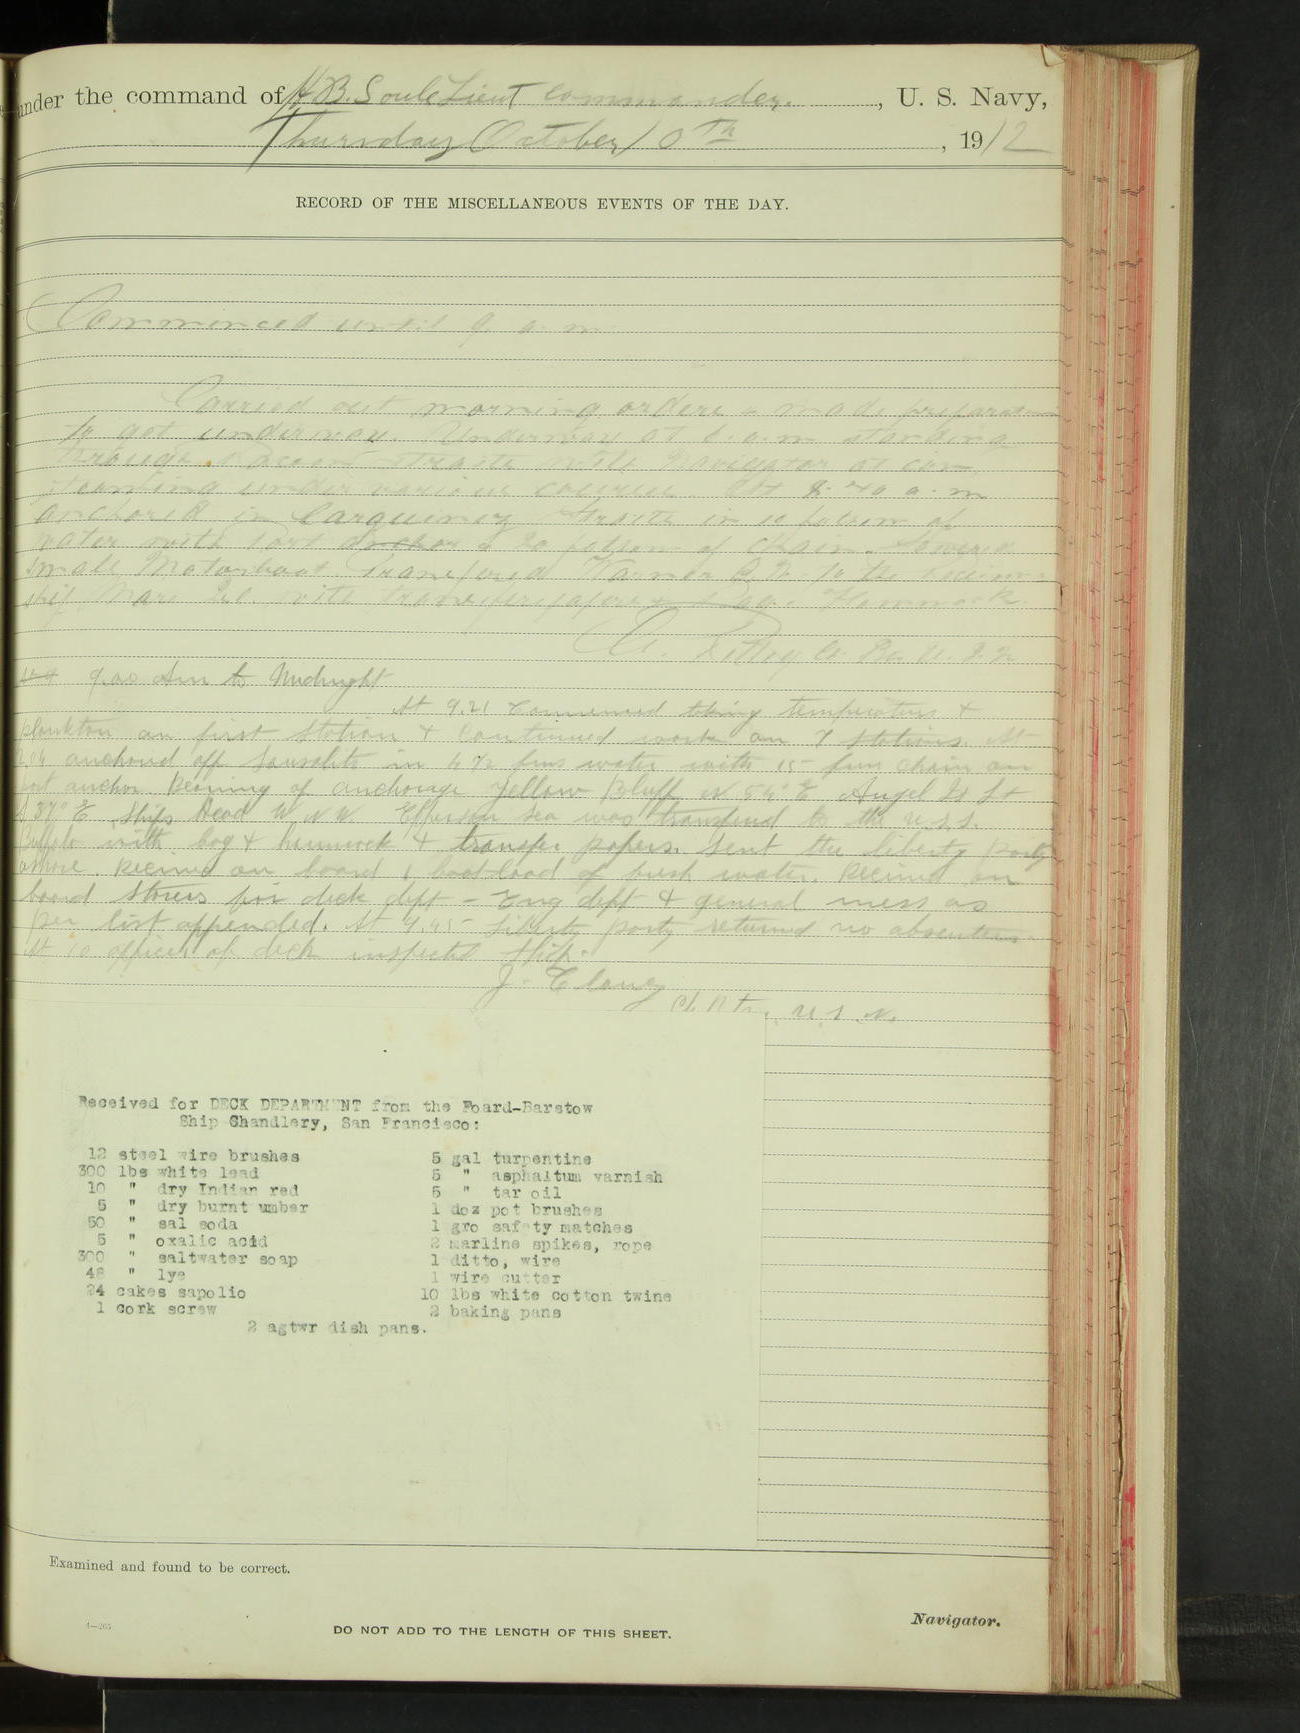 under the command of H B. Soule Lieut Commander. , U. S. Navy,
Thursday October 10th , 1912
RECORD OF THE MISCELLANEOUS EVENTS OF THE DAY.
Commenced until 9 a. m
Carried out morning orders & made
to get underway. Underway at a. m standing
through straits with Navigator at con
under various courses. At 8.40 a. m
anchored in Carquinez Straits in 10 fathom of
water with port anchor & 20 fathom of chain. Lowered
small Motorboat. Transfered to the
ship Mare Isl. with transfer papers & bag & Hammock.
U. S. N
9.00 Am to Midnight
At 9.21 Commenced taking temperature &
plankton on first station & Continued work on 7 stations. At
anchored off Sausalito in 4 1/2 fms water with 15 fms chain on
port anchor. Bearing of anchorage Yellow Bluff N 54° E Angel Is Lt
37° E Ships Head W N W. sea was transferred to the U. S. S.
Buffalo with bag & hammock & transfer papers. Sent the liberty party
ashore. Received on board 1 boat-load of fresh water. Received on
board Stores for deck dept - Eng dept & general mess as
per list appended. At 9.45 liberty party returned no absentees.
At 10 officer of deck inspected Ship.
J. Clancy
U. S. N.
Received for DECK DEPARTMENT from the Foard-Barstow
Ship Chandlery, San Francisco:
12 steel wire brushes 5 gal turpentine
300 lbs white lead 5 " asphaltum varnish
10 " dry Indian red 5 " tar oil
5 " dry burnt umber 1 doz pot brushes
50 " sal soda 1 gro safety matches
5 " oxalic acid 2 marline spikes, rope
300 " saltwater soap 1 ditto, wire
48 " lye 1 wire cutter
24 cakes sapolio 10 lbs white cotton twine
1 cork screw 2 baking pans
2 agtwr dish pans.
Examined and found to be correct.
Navigator.
DO NOT ADD TO THE LENGTH OF THIS SHEET.